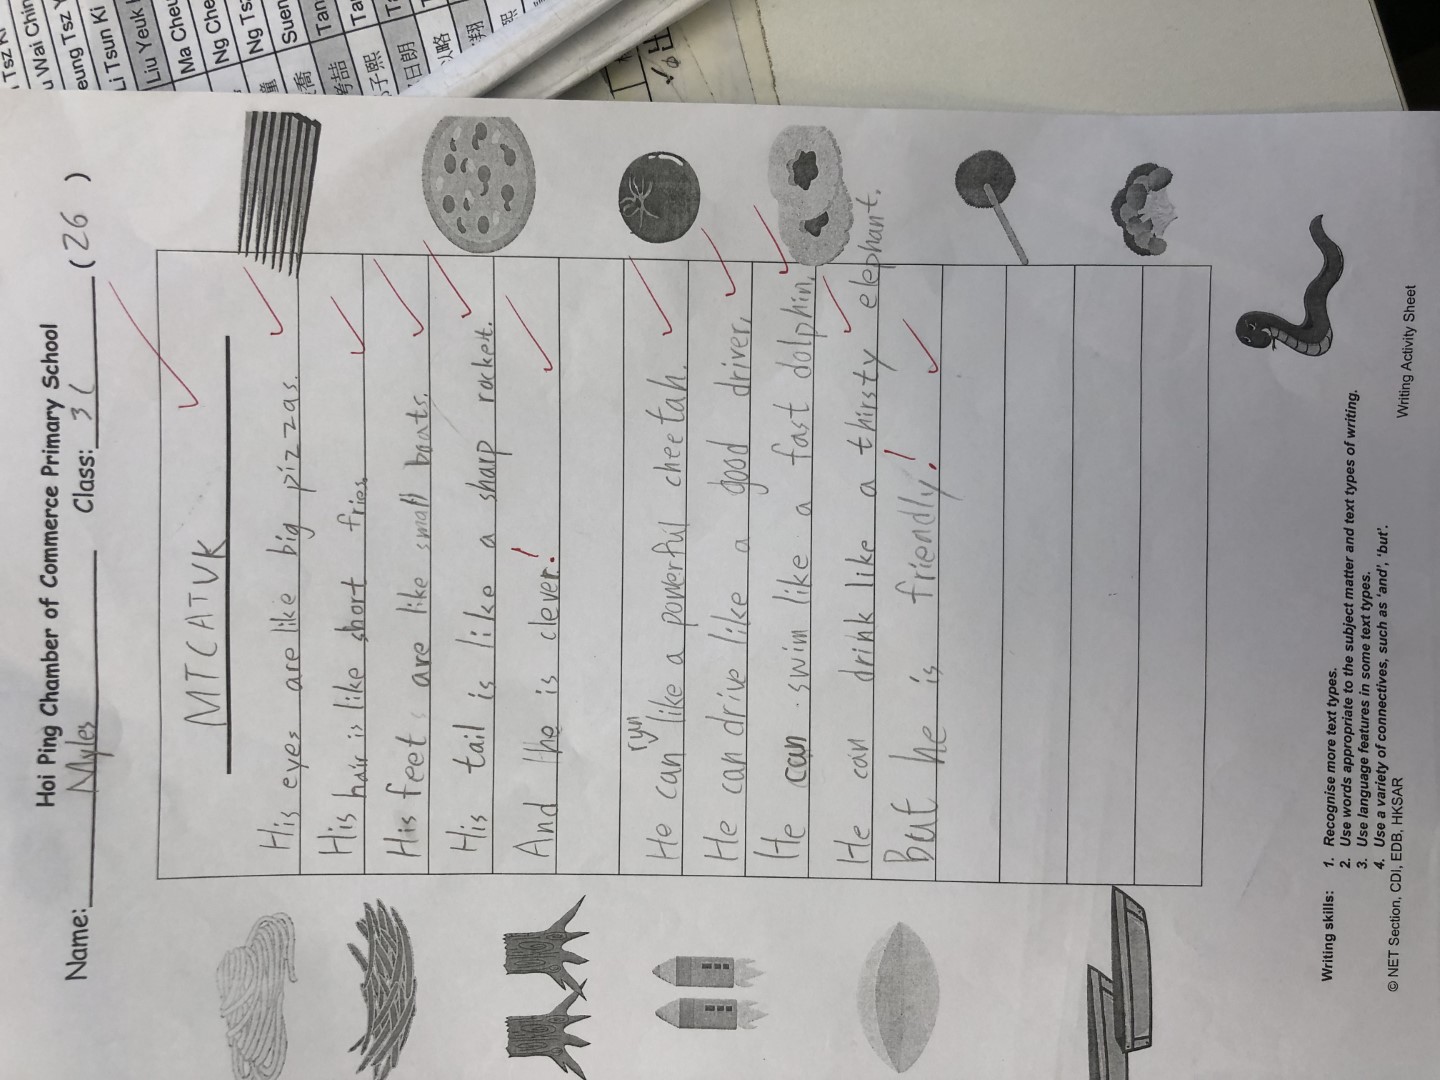 Tsz Ki
u Wai Chin
eung Tsz Y
Li Tsun Ki
Liu Yeuk
Ma Cheu
Ng Che
Ng Ts
Suen
Tan
Ta
童
喬
考喆
子熙
日朗
以略
翔
熙
出
Hoi Ping Chamber of Commerce Primary School
Name: Myles Class: 3 ( (26)
MTCATVK
His eyes are like big pizzas.
His hair is like short fries.
His feet are like small boats.
His tail is like a sharp rocket.
And the is clever!
run
He can like a powerful cheetah.
He can drive like a good driver,
He can swim like a fast dolphin,
He can drink like a thirsty elephant.
but he is friendly!
Writing skills: 1. Recognise more text types.
2. Use words appropriate to the subject matter and text types of writing.
3. Use language features in some text types.
4. Use a variety of connectives, such as 'and', 'but'.
© NET Section, CDI, EDB, HKSAR Writing Activity Sheet